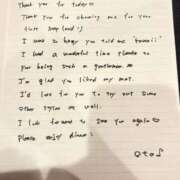 Thank you for today☺
Thank you for choosing me for your
first soap land!
I was so happy you told me
I had a wonderful time thanks to
your being such a gentleman
I'm glad you liked my mat.
I'd love to you to try out some
other types as well.
I look forward to see you again♡
Please enjoy dinner!